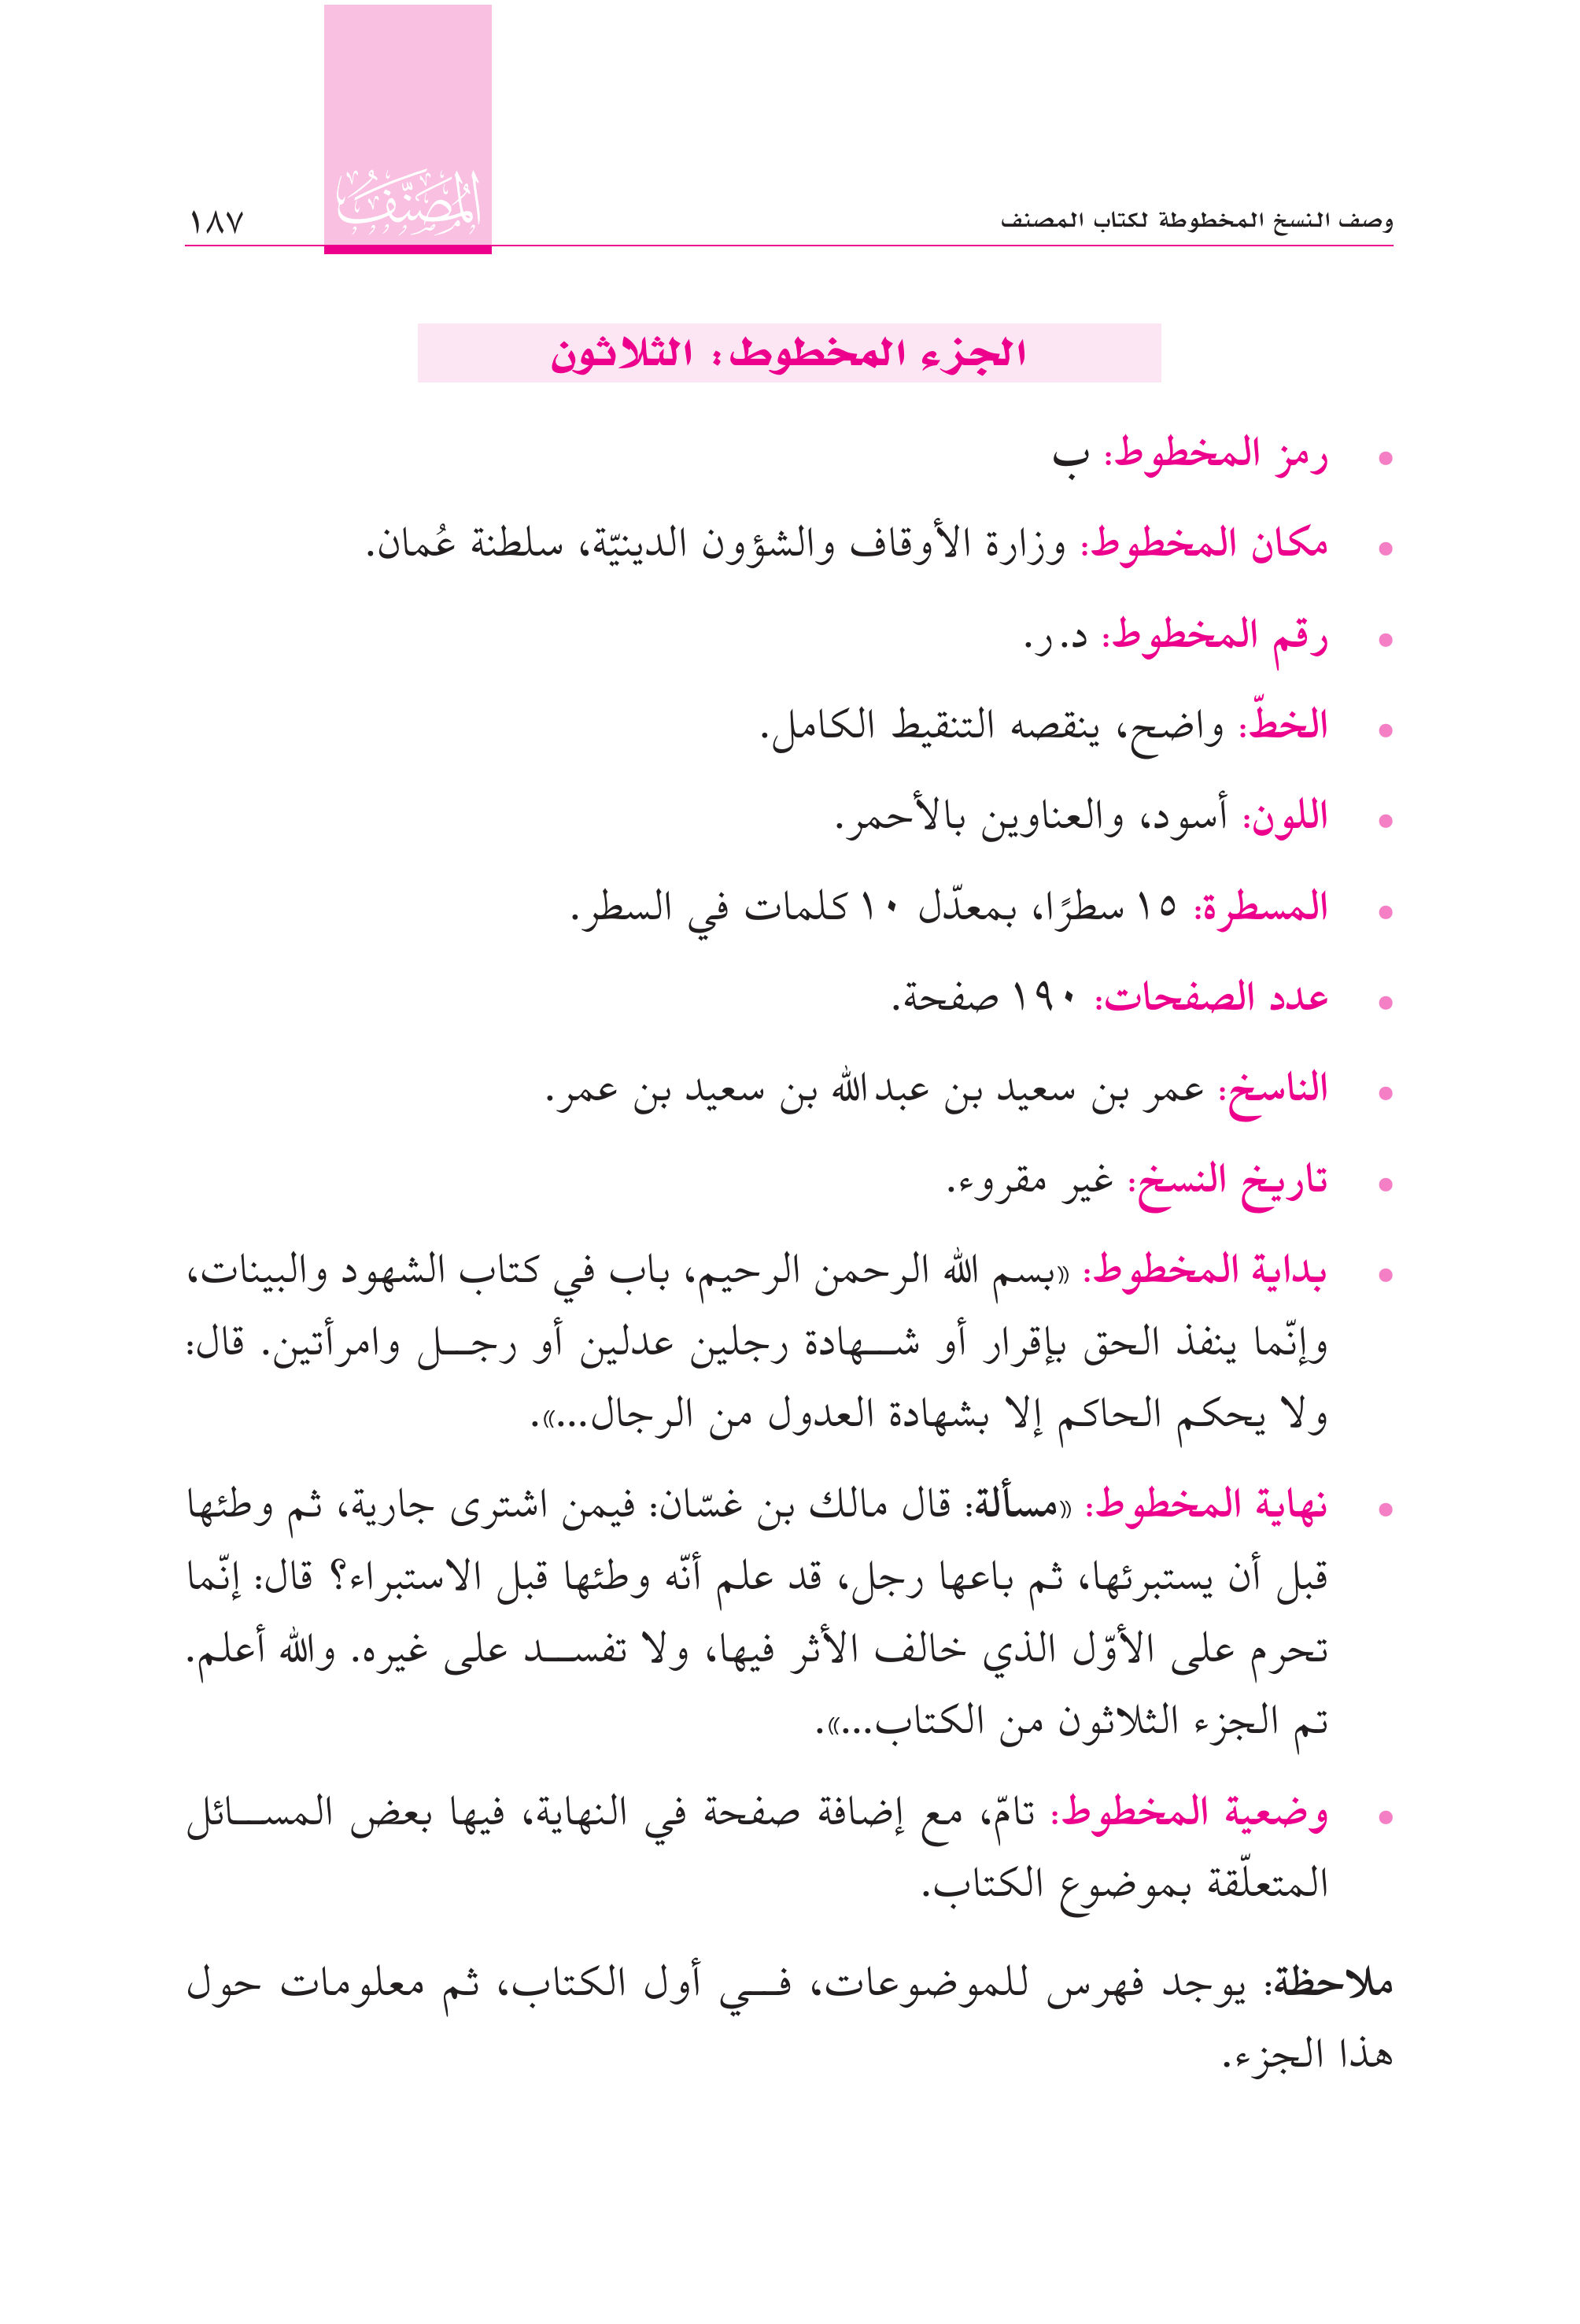 وصف النسخ المخطوطة لكتاب المصنف
المُصَنَّف
١٨٧
الجزء المخطوط: الثلاثون
• رمز المخطوط: ب
• مكان المخطوط: وزارة الأوقاف والشؤون الدينيّة، سلطنة عُمان.
• رقم المخطوط: د.ر.
• الخطّ: واضح، ينقصه التنقيط الكامل.
• اللون: أسود، والعناوين بالأحمر.
• المسطرة: ١٥ سطرًا، بمعدّل ١٠ كلمات في السطر.
• عدد الصفحات: ١٩٠ صفحة.
• الناسخ: عمر بن سعيد بن عبدالله بن سعيد بن عمر.
• تاريخ النسخ: غير مقروء.
• بداية المخطوط: «بسم الله الرحمن الرحيم، باب في كتاب الشهود والبينات،
وإنّما ينفذ الحق بإقرار أو شـــهادة رجلين عدلين أو رجـــل وامرأتين. قال:
ولا يحكم الحاكم إلا بشهادة العدول من الرجال...».
• نهاية المخطوط: «مسألة: قال مالك بن غسّان: فيمن اشترى جارية، ثم وطئها
قبل أن يستبرئها، ثم باعها رجل، قد علم أنّه وطئها قبل الاستبراء؟ قال: إنّما
تحرم على الأوّل الذي خالف الأثر فيها، ولا تفســـد على غيره. والله أعلم.
تم الجزء الثلاثون من الكتاب...».
• وضعية المخطوط: تامّ، مع إضافة صفحة في النهاية، فيها بعض المســـائل
المتعلّقة بموضوع الكتاب.
ملاحظة: يوجد فهرس للموضوعات، فـــي أول الكتاب، ثم معلومات حول
هذا الجزء.